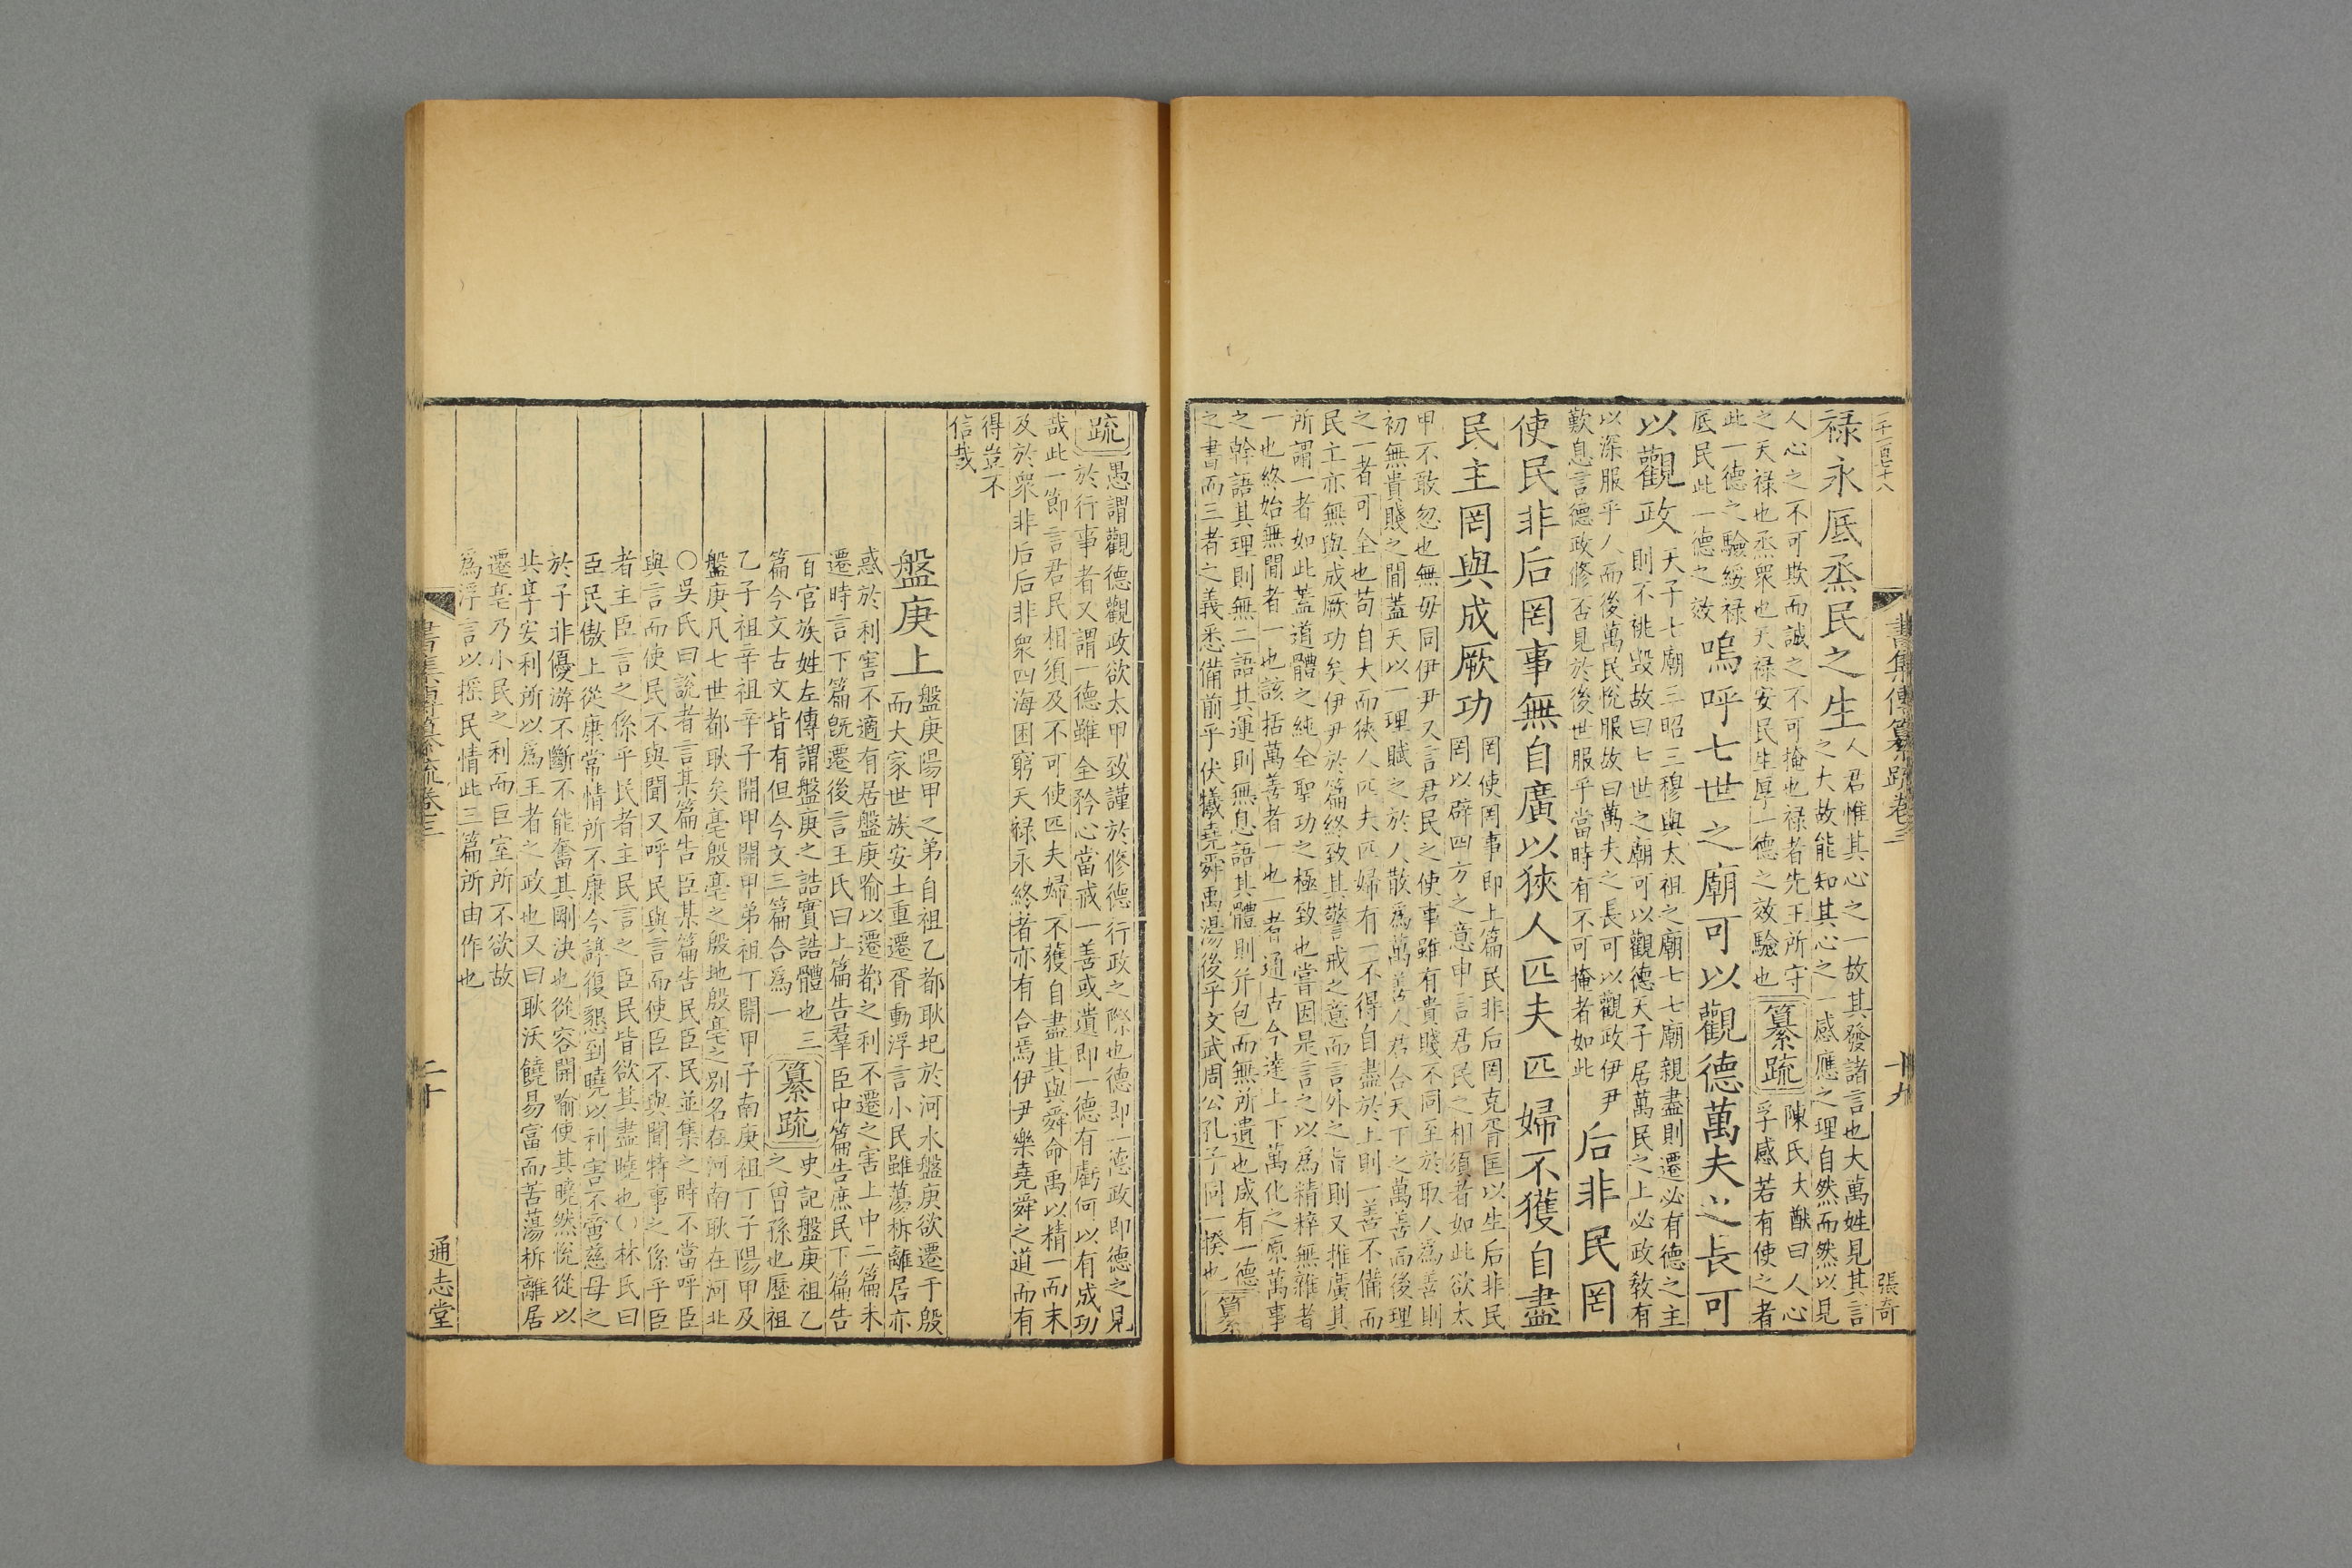 書集傳纂疏卷三
十九
張奇
祿永厎烝民之生
人君惟其心之一故其發諸言也大萬姓見其言
之大故能知其心之一感應之理自然而然以見
人心之不可欺而誠之不可掩也祿者先王所守
之天祿也烝衆也天祿安民生厚一德之效驗也
纂疏
陳氏大猷曰人心
孚感若有使之者
此一德之驗綏祿
厎民此一德之效
嗚呼七世之廟可以觀德萬夫之長可
以觀政
天子七廟三昭三穆與太祖之廟七七廟親盡則遷必有德之主
則不祧毀故曰七世之廟可以觀德天子居萬民之上必政敎有
以深服乎人而後萬民悅服故曰萬夫之長可以觀政伊尹
歎息言德政修否見於後世服乎當時有不可掩者如此
后非民罔
使民非后罔事無自廣以狹人匹夫匹婦不獲自盡
民主罔與成厥功
罔使罔事即上篇民非后罔克胥匡以生后非民
罔以辟四方之意申言君民之相須者如此欲太
甲不敢忽也無毋同伊尹又言君民之使事雖有貴賤不同至於取人爲善則
初無貴賤之間蓋天以一理賦之於人散爲萬善人君合天下之萬善而後理
之一者可全也苟自大而狹人匹夫匹婦有一不得自盡於上則一善不備而
民主亦無與成厥功矣伊尹於篇終致其警戒之意而言外之旨則又推廣其
所謂一者如此蓋道體之純全聖功之極致也嘗因是言之以爲精粹無雜者
一也終始無間者一也該括萬善者一也一者通古今達上下萬化之原萬事
之幹語其理則無二語其運則無息語其體則并包而無所遺也咸有一德
之書而三者之義悉備前乎伏犧堯舜禹湯後乎文武周公孔子同一揆也
纂
疏
愚謂觀德觀政欲太甲致謹於修德行政之際也德即一德政即德之見
於行事者又謂一德雖全矜心當戒一善或遺即一德有虧何以有成功
哉此一節言君民相須及不可使匹夫婦不獲自盡其與舜命禹以精一而末
及於衆非后后非衆四海困窮天祿永終者亦有合焉伊尹樂堯舜之道而有
得豈不
信哉
盤庚上
盤庚陽甲之弟自祖乙都耿圯於河水盤庚欲遷于殷
而大家世族安土重遷胥動浮言小民雖蕩析離居亦
惑於利害不適有居盤庚喻以遷都之利不遷之害上中二篇未
遷時言下篇旣遷後言王氏曰上篇告羣臣中篇告庶民下篇告
百官族姓左傳謂盤庚之誥實誥體也三
篇今文古文皆有但今文三篇合爲一
纂疏
史記盤庚祖乙
之曾孫也歷祖
乙子祖辛祖辛子開甲開甲弟祖丁開甲子南庚祖丁子陽甲及
盤庚凡七世都耿矣亳殷亳之殷地殷亳之別名在河南耿在河北
○吳氏曰說者言某篇告臣某篇告民臣民並集之時不當呼臣
與言而使民不與聞又呼民與言而使臣不與聞特事之係乎臣
者主臣言之係乎民者主民言之臣民皆欲其盡曉也○林氏曰
臣民傲上從康常情所不康今諄復懇到曉以利害不啻慈母之
於子非優游不斷不能奮其剛決也從容開喻使其曉然悅從以
共享安利所以爲王者之政也又曰耿沃饒易富而苦蕩析離居
遷亳乃小民之利而巨室所不欲故
爲浮言以搖民情此三篇所由作也
書集傳纂疏卷三
二十
通志堂